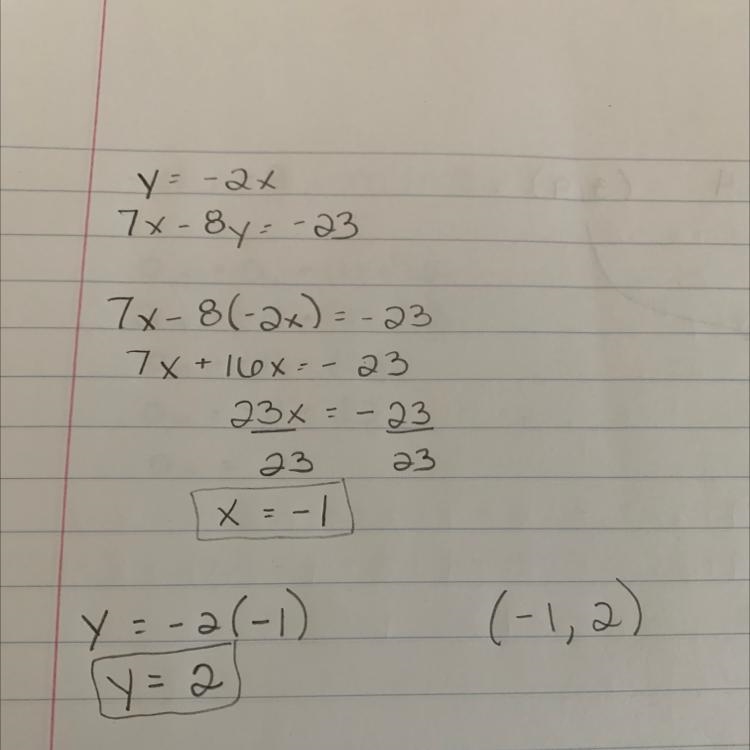 y = -2x
7x - 8y = -23
7x - 8(-2x) = -23
7x + 16x = - 23
23x = - 23
23 23
x = -1
y = -2(-1) (-1, 2)
y = 2